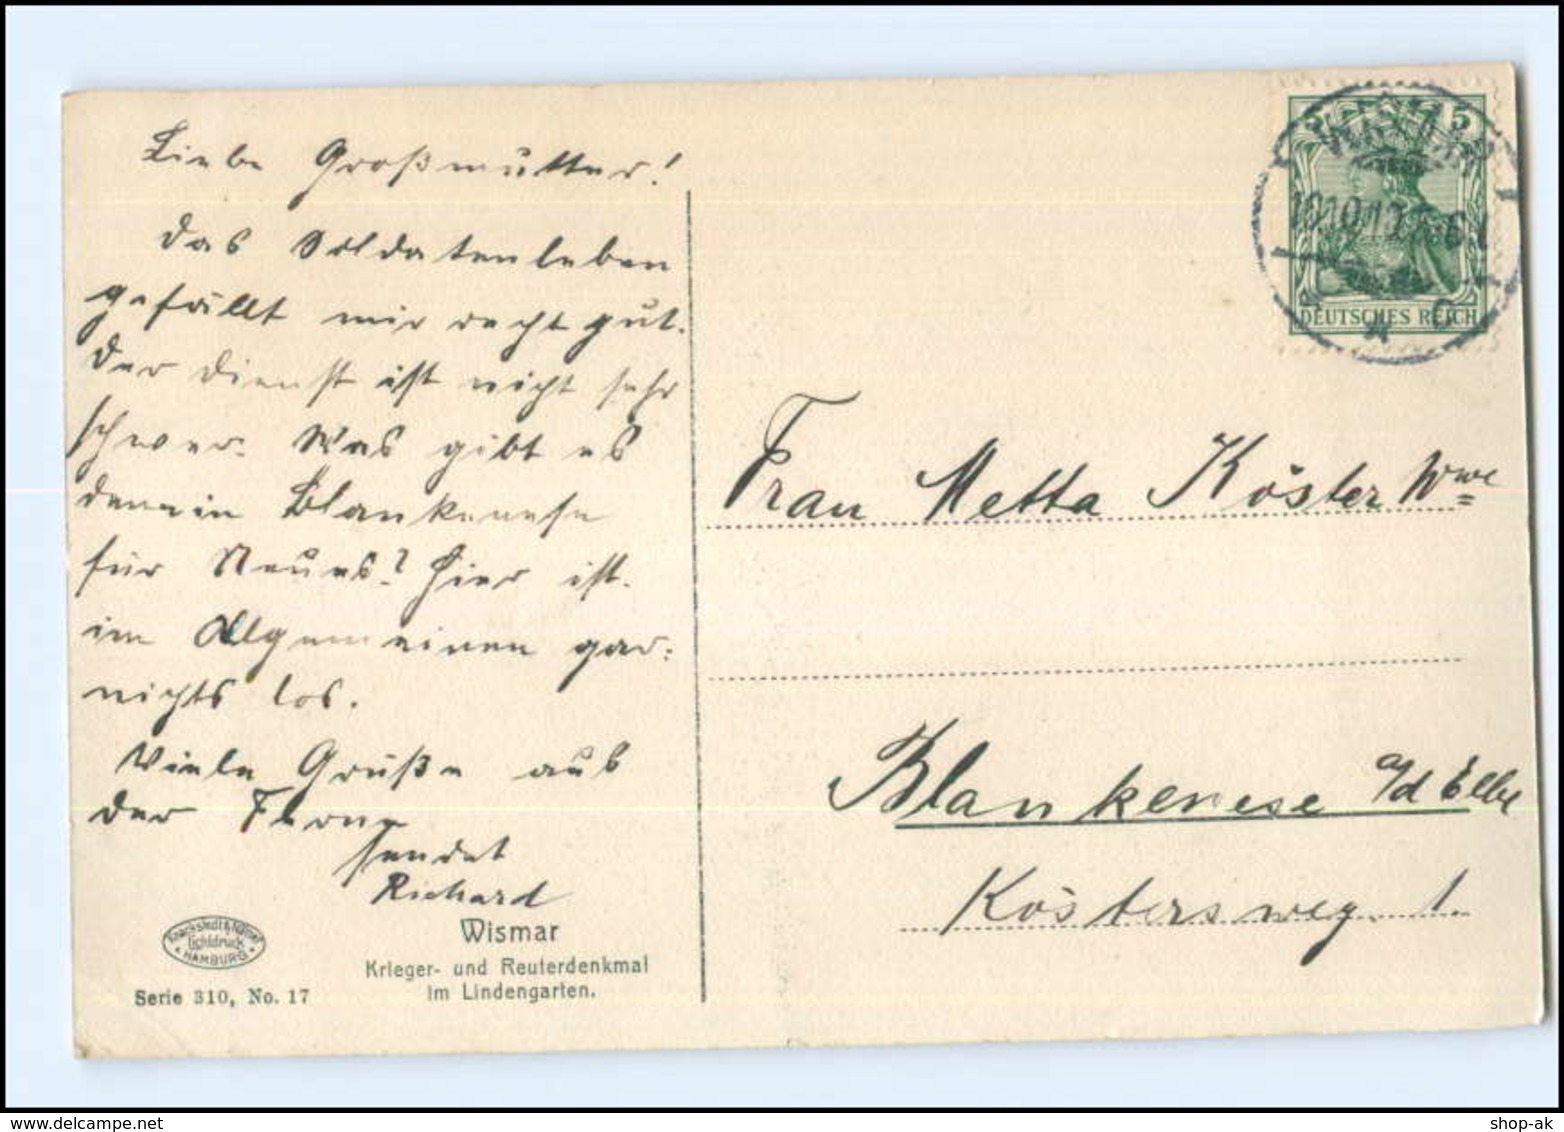 Liebe Großmutter!
Das Soldatenleben
gefällt mir recht gut.
Der Dienst ist nicht sehr
schwer. Was gibt es
denn in Blankenese
für Neues? Hier ist
im Allgemeinen gar
nichts los.
Viele Grüße aus
der Ferne
sendet
Richard
Wismar
Krieger- und Reuterdenkmal
im Lindengarten.
Lichtdruck
HAMBURG
Serie 310, No. 17
5
WISMAR
DEUTSCHES REICH
Frau Metta Köster Wwe
Blankenese a/d Elbe
Köstersweg. 1.
shop-ak